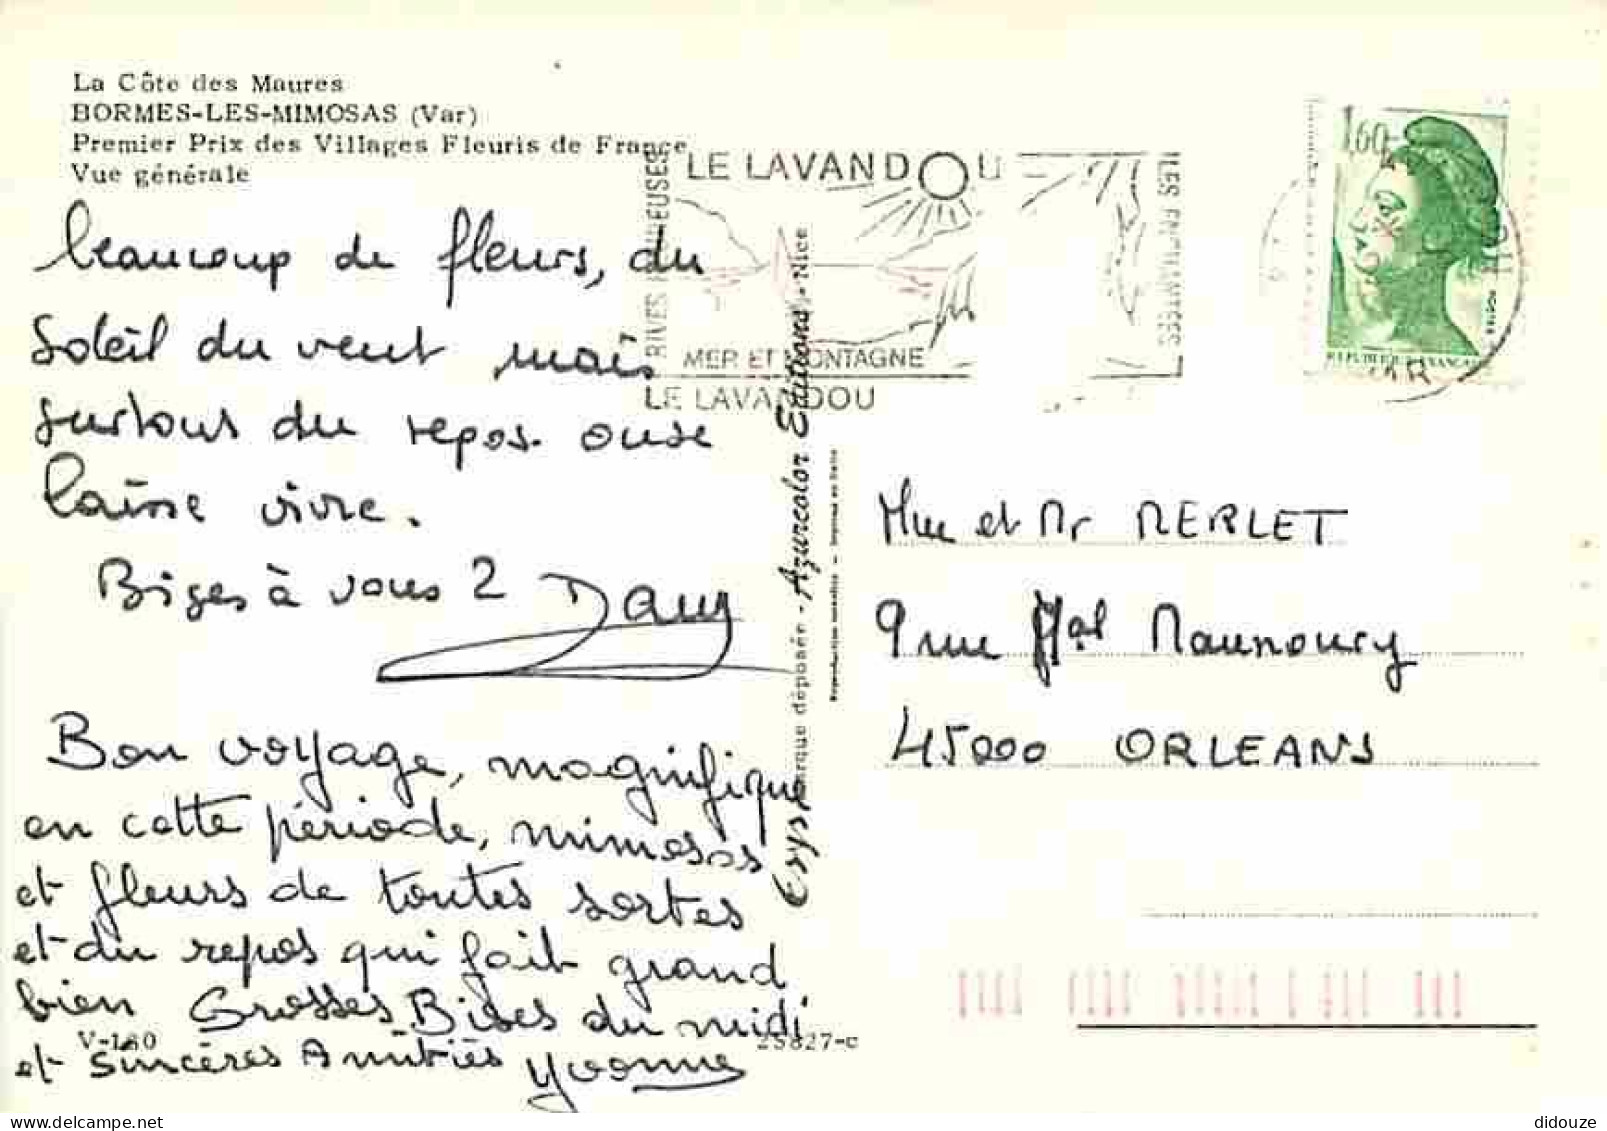 La Côte des Maures
BORMES-LES-MIMOSAS (Var)
Premier Prix des Villages Fleuris de France
Vue générale
beaucoup de fleurs, du
soleil du vent mais
surtout du repos. on se
laisse vivre.
Bises à vous 2 Dany
Bon voyage, magnifique
en cette période, mimosas
et fleurs de toutes sortes
et du repos qui fait grand
bien Grosses Bises du midi
et sincères Amitiés Yvonne
V-180
25827-c
LE LAVANDOU
RIVES
MER ET MONTAGNE
LE LAVANDOU
LES
marque déposée - Azurcolor Editions - Nice
1,60
REPUBLIQUE FRANCAISE
VAR
Mme et Mr MERLET
9 rue Mal Maunoury
45000 ORLEANS
didouze